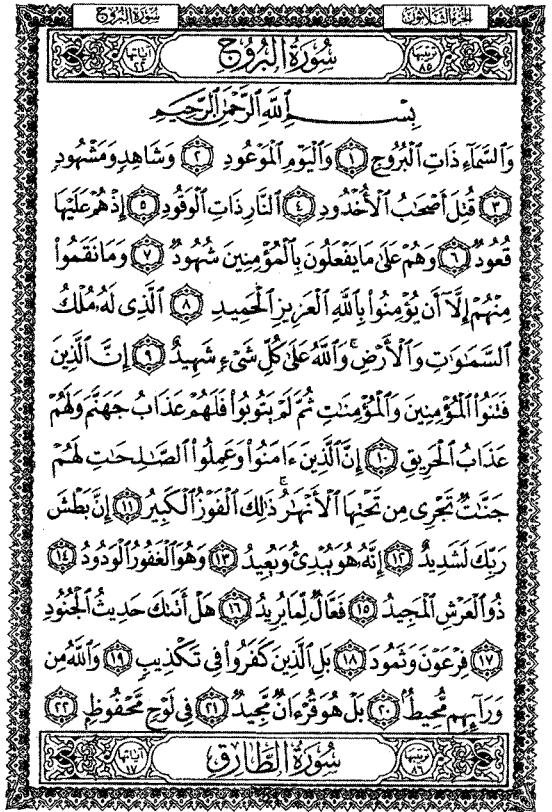 سُورَةُ البُرُوجِ الجُزءُ الثَّلَاثُونَ
آياتها ٢٢ سُورَةُ البُرُوجِ ترتيبها ٨٥
بِسْمِ اللَّهِ الرَّحْمَٰنِ الرَّحِيمِ
وَٱلسَّمَآءِ ذَاتِ ٱلْبُرُوجِ ١ وَٱلْيَوْمِ ٱلْمَوْعُودِ ٢ وَشَاهِدٍ وَمَشْهُودٍ
٣ قُتِلَ أَصْحَٰبُ ٱلْأُخْدُودِ ٤ ٱلنَّارِ ذَاتِ ٱلْوَقُودِ ٥ إِذْ هُمْ عَلَيْهَا
قُعُودٌ ٦ وَهُمْ عَلَىٰ مَا يَفْعَلُونَ بِٱلْمُؤْمِنِينَ شُهُودٌ ٧ وَمَا نَقَمُوا۟
مِنْهُمْ إِلَّآ أَن يُؤْمِنُوا۟ بِٱللَّهِ ٱلْعَزِيزِ ٱلْحَمِيدِ ٨ ٱلَّذِى لَهُۥ مُلْكُ
ٱلسَّمَٰوَٰتِ وَٱلْأَرْضِ ۚ وَٱللَّهُ عَلَىٰ كُلِّ شَىْءٍ شَهِيدٌ ٩ إِنَّ ٱلَّذِينَ
فَتَنُوا۟ ٱلْمُؤْمِنِينَ وَٱلْمُؤْمِنَٰتِ ثُمَّ لَمْ يَتُوبُوا۟ فَلَهُمْ عَذَابُ جَهَنَّمَ وَلَهُمْ
عَذَابُ ٱلْحَرِيقِ ١٠ إِنَّ ٱلَّذِينَ ءَامَنُوا۟ وَعَمِلُوا۟ ٱلصَّٰلِحَٰتِ لَهُمْ
جَنَّٰتٌ تَجْرِى مِن تَحْتِهَا ٱلْأَنْهَٰرُ ۚ ذَٰلِكَ ٱلْفَوْزُ ٱلْكَبِيرُ ١١ إِنَّ بَطْشَ
رَبِّكَ لَشَدِيدٌ ١٢ إِنَّهُۥ هُوَ يُبْدِئُ وَيُعِيدُ ١٣ وَهُوَ ٱلْغَفُورُ ٱلْوَدُودُ ١٤
ذُو ٱلْعَرْشِ ٱلْمَجِيدُ ١٥ فَعَّالٌ لِّمَا يُرِيدُ ١٦ هَلْ أَتَىٰكَ حَدِيثُ ٱلْجُنُودِ
١٧ فِرْعَوْنَ وَثَمُودَ ١٨ بَلِ ٱلَّذِينَ كَفَرُوا۟ فِى تَكْذِيبٍ ١٩ وَٱللَّهُ مِن
وَرَآئِهِم مُّحِيطٌۢ ٢٠ بَلْ هُوَ قُرْءَانٌ مَّجِيدٌ ٢١ فِى لَوْحٍ مَّحْفُوظٍۭ ٢٢
آياتها ١٧ سُورَةُ الطَّارِقِ ترتيبها ٨٦